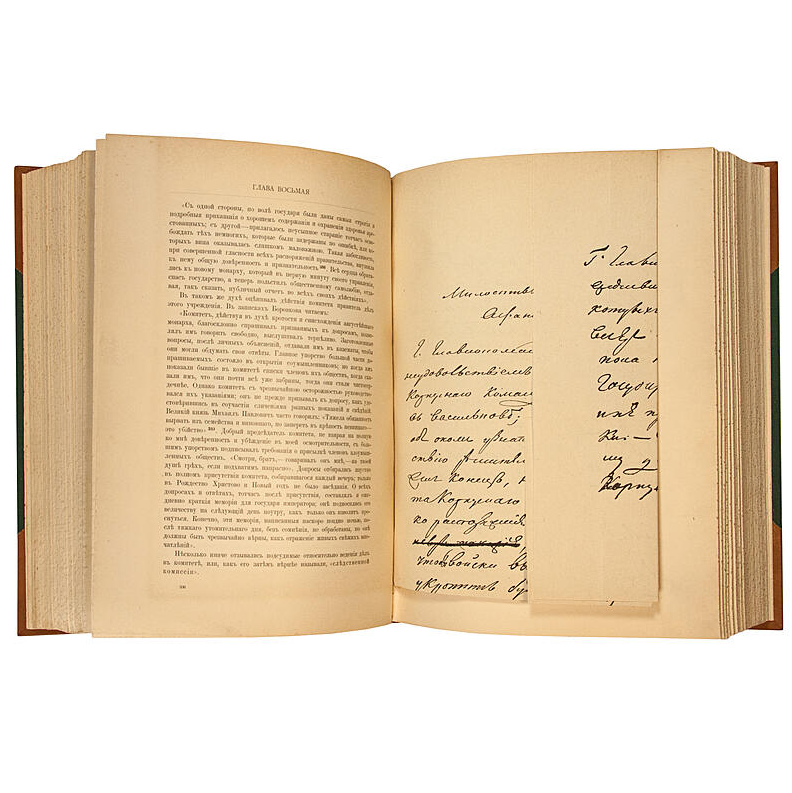 ГЛАВА ВОСЬМАЯ
«Съ одной стороны, по волѣ государя были даны самыя строгія и
подробныя приказанія о хорошемъ содержаніи и охраненіи здоровья аре-
стованныхъ; съ другой—прилагалось неусыпное стараніе тотчасъ осво-
бождать тѣхъ немногихъ, которые были задержаны по ошибкѣ, или ко-
торыхъ вина оказывалась слишкомъ маловажною. Такая заботливость,
при совершенной гласности всѣхъ распоряженій правительства, внушила
къ нему общую довѣренность и признательность
лись къ новому монарху, который въ первую минуту своего правленія,
спасъ государство, а теперь польстилъ общественному самолюбію, отда-
вая, такъ сказать, публичный отчетъ во всѣхъ своихъ дѣйствіяхъ».
Въ такомъ же духѣ оцѣниваетъ дѣйствія комитета правитель дѣлъ
этого учрежденія. Въ запискахъ Боровкова читаемъ:
«Комитетъ, дѣйствуя въ духѣ кротости и снисхожденія августѣйшаго
монарха, благосклонно спрашивалъ призванныхъ къ допросамъ, позво-
лялъ имъ говорить свободно, выслушивалъ терпѣливо. Заготовленные
вопросы, послѣ личныхъ объясненій, отдавали имъ въ казематы, чтобы
они могли обдумать свои отвѣты. Главное упорство большей части до-
прашиваемыхъ состояло въ открытіи соумышленниковъ; но когда имъ
показывали бывшіе въ комитетѣ списки членовъ ихъ общества, когда ска-
зали имъ, что они почти всѣ уже забраны, тогда они стали чистосер-
дечнѣе. Однако комитетъ съ чрезвычайною осторожностью руководство-
вался ихъ указаніями; онъ не прежде призывалъ къ допросу, какъ удо-
стовѣрившись въ соучастіи сличеніемъ разныхъ показаній и свѣдѣній.
Великій князь Михаилъ Павловичъ часто говорилъ: «Тяжела обязанность
вырвать изъ семейства и виновнаго, но запереть въ крѣпость невиннаго—
это убійство»
ко мнѣ довѣренность и убѣжденіе въ моей осмотрительности, съ боль-
шимъ упорствомъ подписывалъ требованія о присылкѣ членовъ злоумыш-
ленныхъ обществъ. «Смотри, братъ,—говаривалъ онъ мнѣ,—на твоей
душѣ грѣхъ, если подхватимъ напрасно». Допросы отбирались изустно
въ полномъ присутствіи комитета, собиравшагося каждый вечеръ; только
въ Рождество Христово и Новый годъ не было засѣданія. О всѣхъ
допросахъ и отвѣтахъ, тотчасъ послѣ присутствія, составлялъ я еже-
дневно краткія меморіи для государя императора; онѣ подносились его
величеству на слѣдующій день поутру, какъ только онъ изволитъ про-
снуться. Конечно, эти меморіи, написанныя наскоро позднею ночью, по-
слѣ тяжкаго утомительнаго дня, безъ сомнѣнія, не обработаны, но онѣ
должны быть чрезвычайно вѣрны, какъ отраженіе живыхъ свѣжихъ впе-
чатлѣній».
Нѣсколько иначе отзывались подсудимые относительно веденія дѣлъ
въ комитетѣ, или, какъ его затѣмъ вѣрнѣе называли, «слѣдственной
комиссіи».
Милостивы
Г. Главнокома
неудовольствіемъ
въ Васильковѣ;
что войски
укротить бу
Г. Главн
которых
пока
Корпу